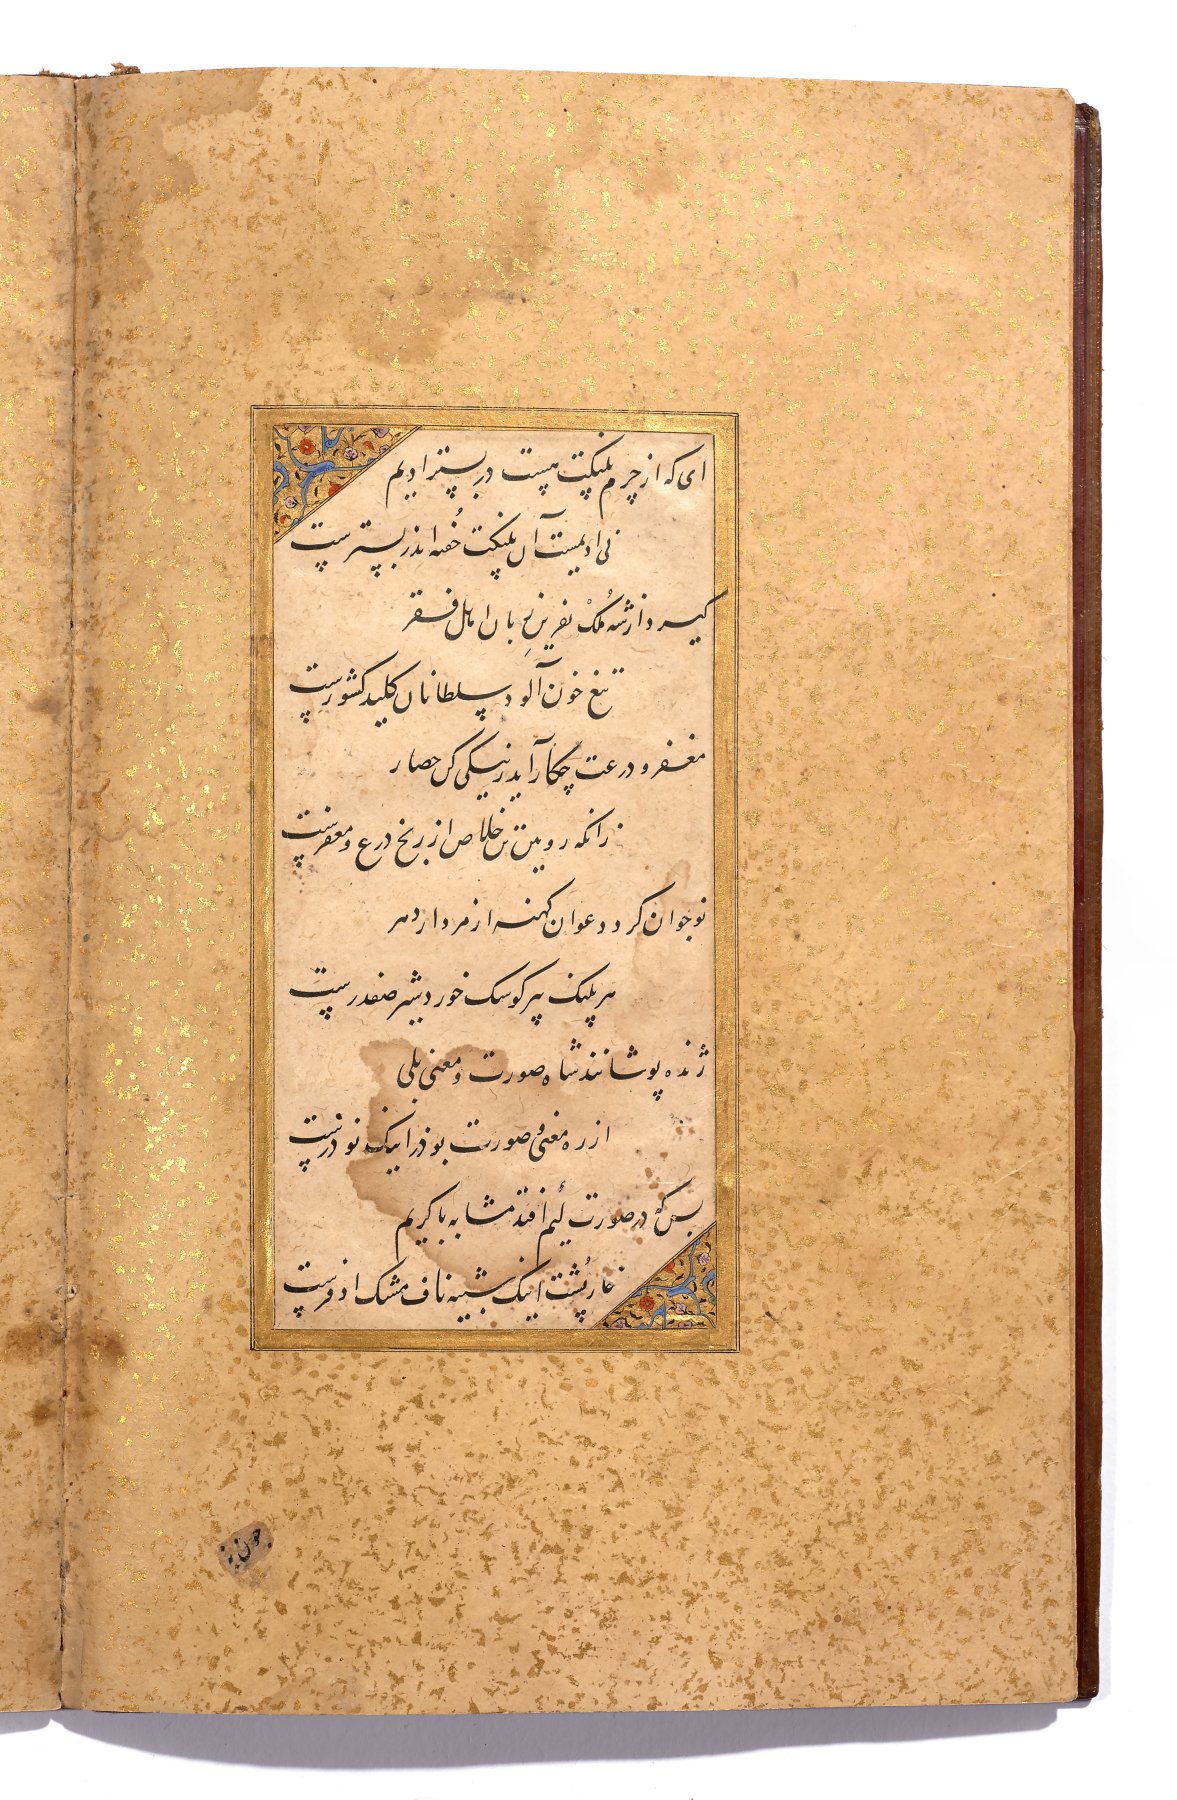 ای که از چرم پلنگت هست در بستر ادیم
نی ادیمست آن پلنگت خفته اندر بسترست
گیرد از شه ملک نفرین زبان اهل فقر
تیغ خون آلود سلطانان کلید کشورست
مغفر و درعت چکار آید ز نیکی کن حصار
زانکه رویین تن خلاص از رنج درع و مغفرست
نوجوان گردد عوان کهنه از مردار دهر
هر پلنگ پیر کو سگ خورد شیر صفدرست
ژنده پوشانند شاه صورت و معنی بلی
از ره معنی و صورت بوذر اینک نوذرست
بس که در صورت لئیم افتد مشابه با کریم
خارپشت اینک شبیه ناف مشک اذفرست
چون